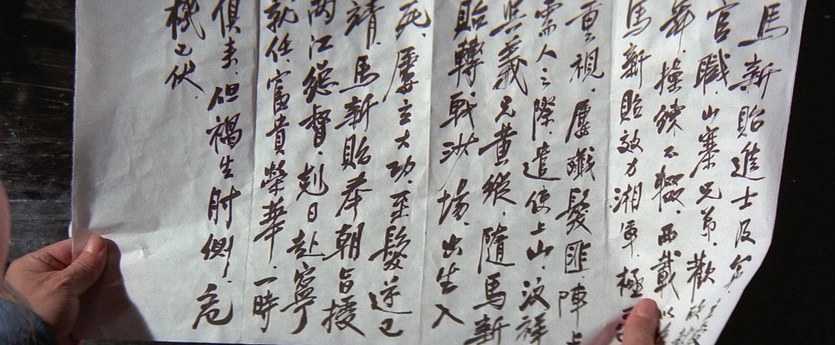 馬新貽進士及第
官職、山寨兄弟、歡
舞、操練不輟、兩載
馬新貽效力湘軍、極
重視、屢殲髮匪、陣上
需人之際、遣使上山、汶祥
與義兄黃縱、隨馬新
貽轉戰沙場、出生入
死、屢立大功、至髮逆已
靖、馬新貽奉朝旨授
兩江總督、剋日赴寧
就任、富貴榮華、一時
俱來、但禍生肘側、危
機已伏